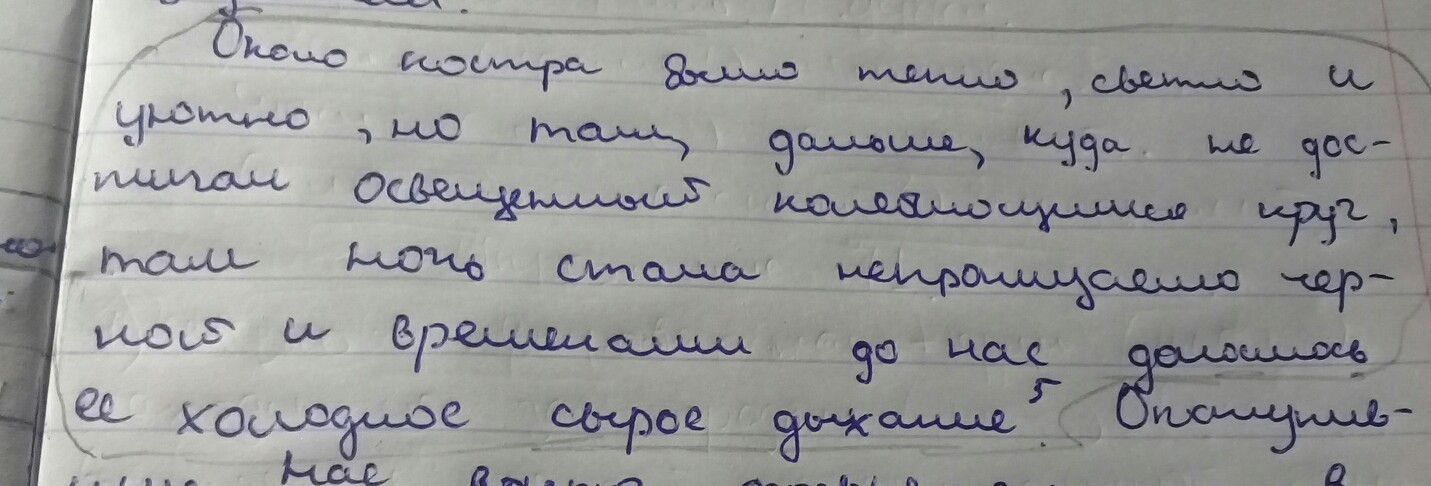 Около костра было тепло, светло и
уютно, но там, дальше, куда не дос-
тигал освещенный колеблющимся круг,
там ночь стала непроницаемо чер-
ной и временами до нас доносилось
ее холодное сырое дыхание 5. Опьянив-
нас